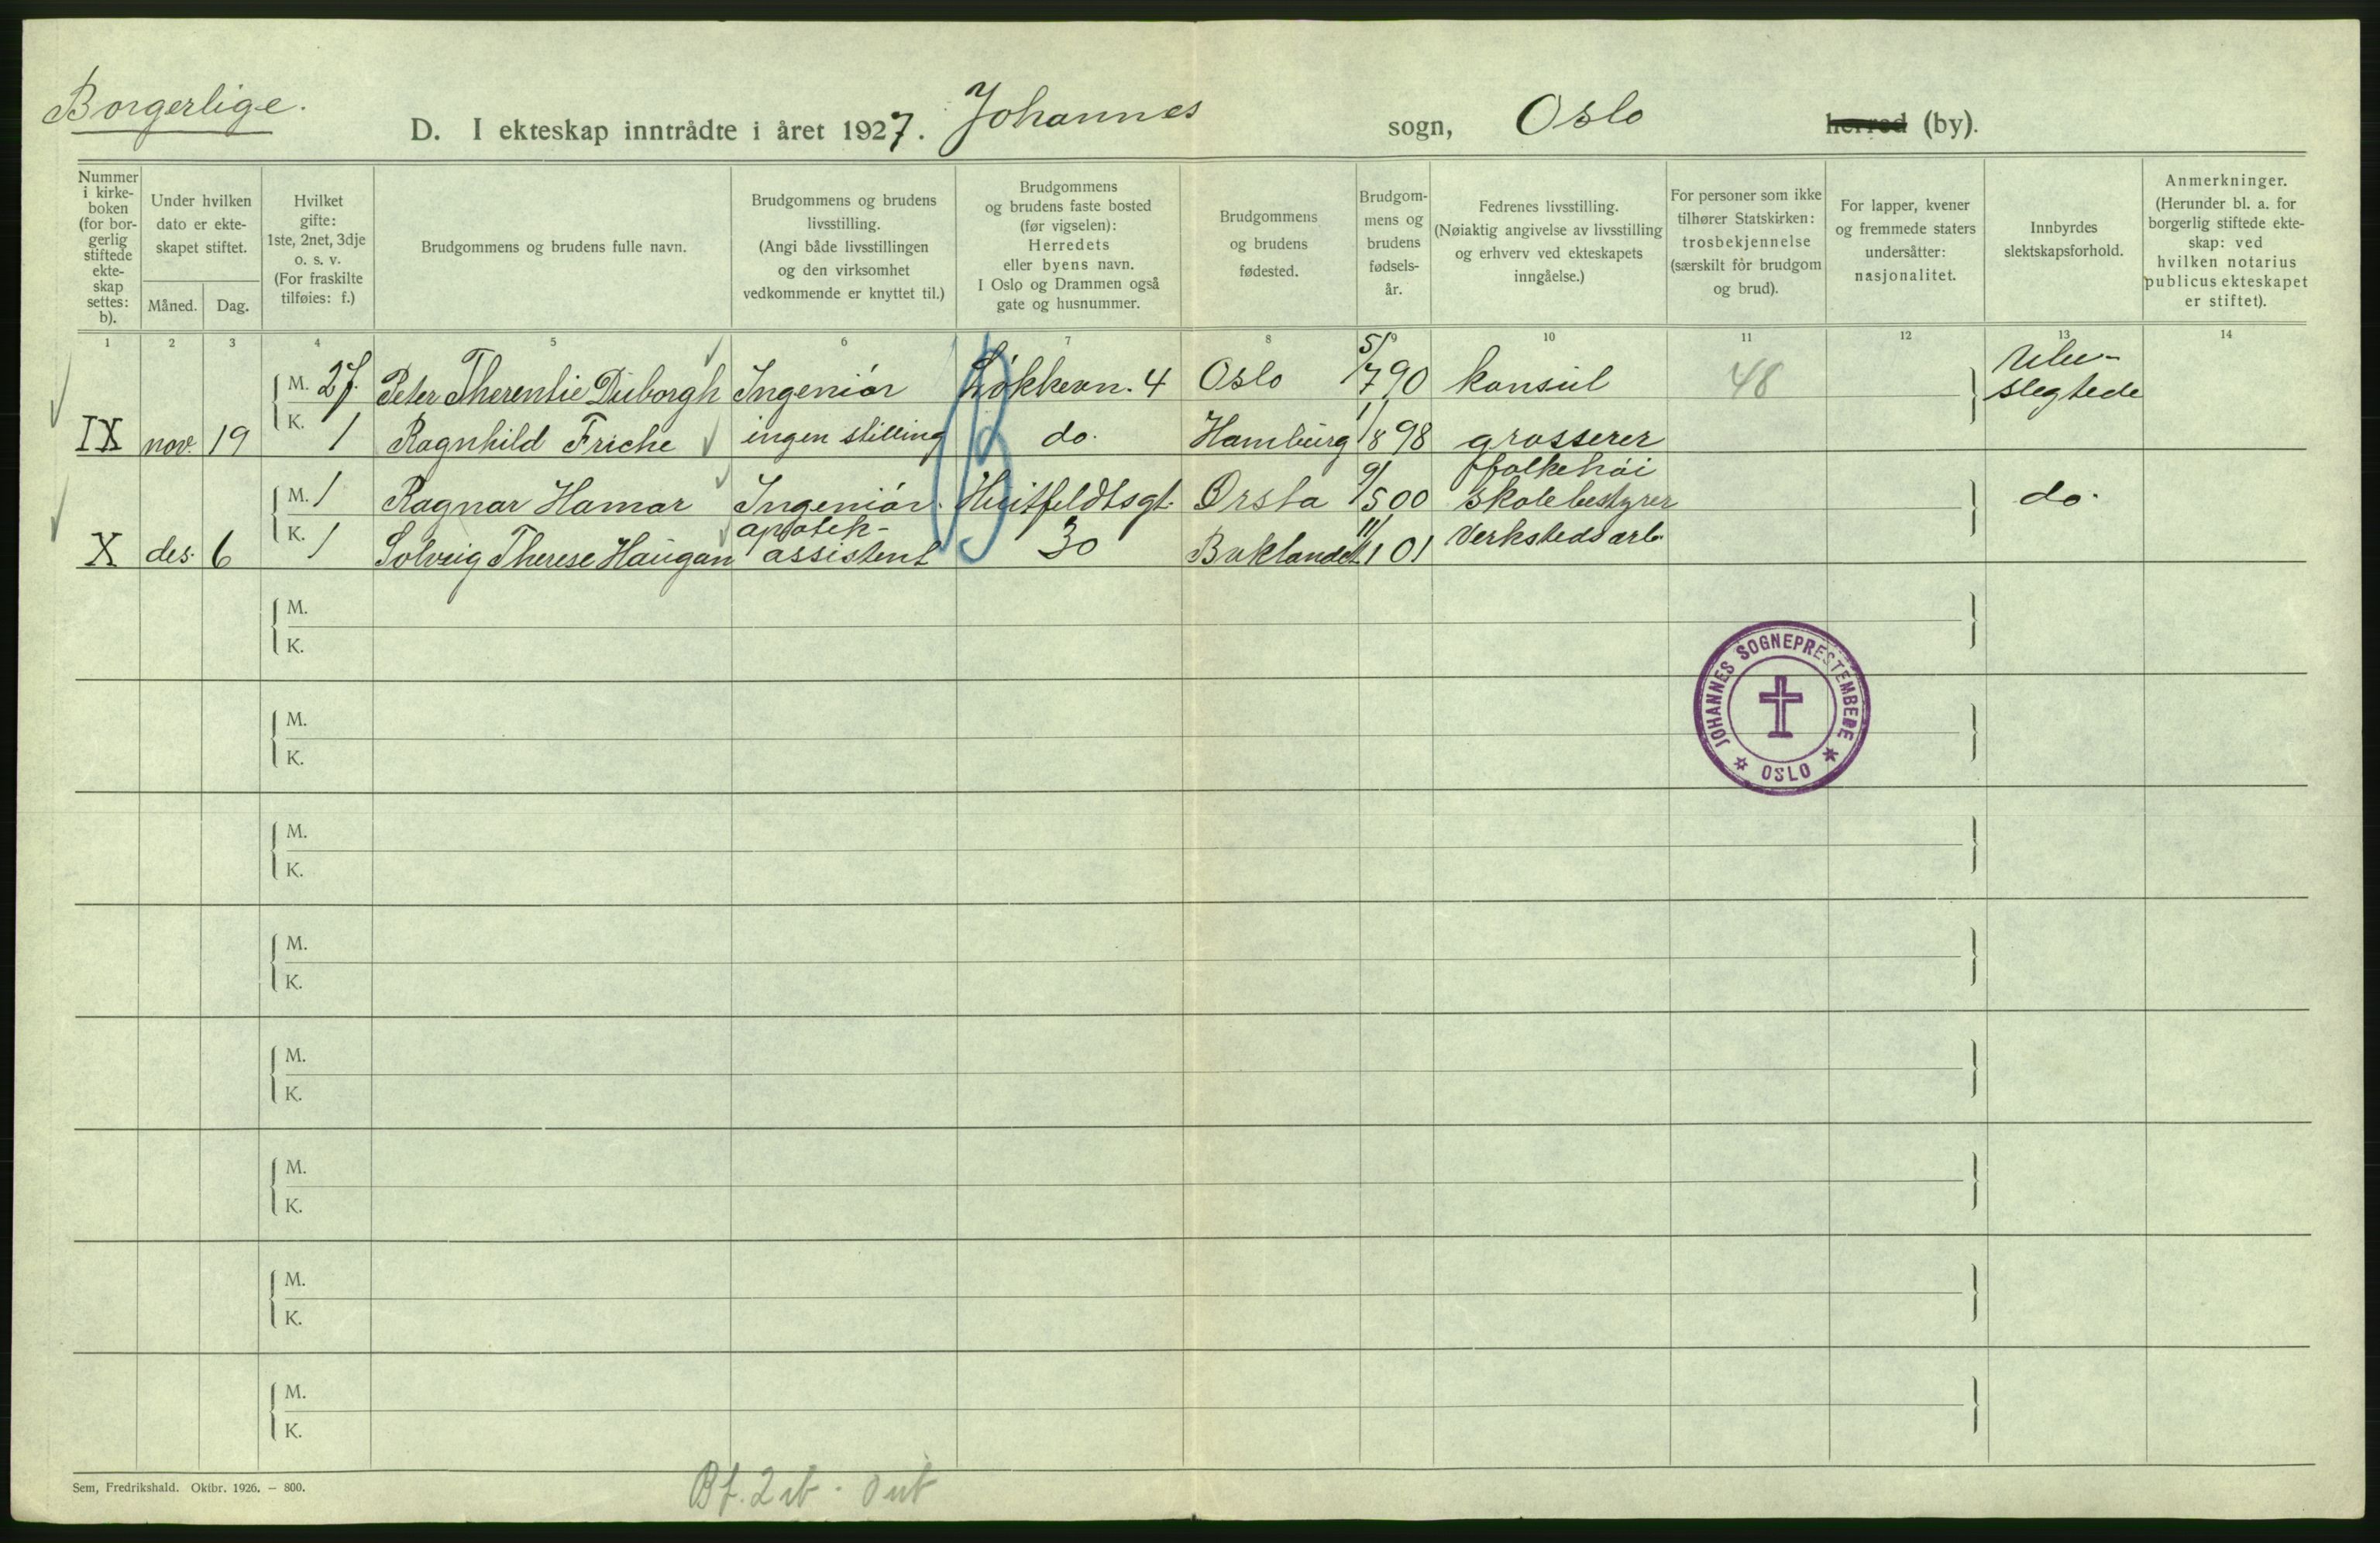 Borgerlige.
D. I ekteskap inntrådte i året 1927. Johannes sogn, Oslo herred (by).
Nummer i kirke- boken (for bor- gerlig stiftede ekte- skap settes: b).
Under hvilken dato er ekte- skapet stiftet.
Måned. Dag.
Hvilket gifte: 1ste, 2net, 3dje o. s. v. (For fraskilte tilføies: f.)
Brudgommens og brudens fulle navn.
Brudgommens og brudens livsstilling. (Angi både livsstillingen og den virksomhet vedkommende er knyttet til.)
Brudgommens og brudens faste bosted (før vigselen): Herredets eller byens navn. I Oslo og Drammen også gate og husnummer.
Brudgommens og brudens fødested.
Brudgom- mens og brudens fødsels- år.
Fedrenes livsstilling. (Nøiaktig angivelse av livsstilling og erhverv ved ekteskapets inngåelse.)
For personer som ikke tilhører Statskirken: trosbekjennelse (særskilt for brudgom og brud).
For lapper, kvener og fremmede staters undersåtter: nasjonalitet.
Innbyrdes slektskapsforhold.
Anmerkninger. (Herunder bl. a. for borgerlig stiftede ekte- skap: ved hvilken notarius publicus ekteskapet er stiftet).
1 2 3 4 5 6 7 8 9 10 11 12 13 14
M. 2f. Peter Therentie Duborgh Ingeniór Lökkevn. 4 Oslo 5/7 90 konsul 48 Ube- slegtede
IX nov. 19 K. 1 Ragnhild Friche ingen stilling do. Hamburg 1/8 98 grosserer
M. 1 Ragnar Hamar Ingeniór. Huitfeldtsgt. Ørsta 9/5 00 folkehói skolebestyrer do.
X des. 6 K. 1 Solveig Therese Haugan apotek- assistent 30 Baklandet 11/1 01 Verkstedsarb.
M.
K.
M.
K.
M.
K.
M.
K.
M.
K.
M.
K.
M.
K.
M.
K.
JOHANNES SOGNEPRESTEMBEDE
OSLO
Sem, Fredrikshald. Oktbr. 1926. — 800.